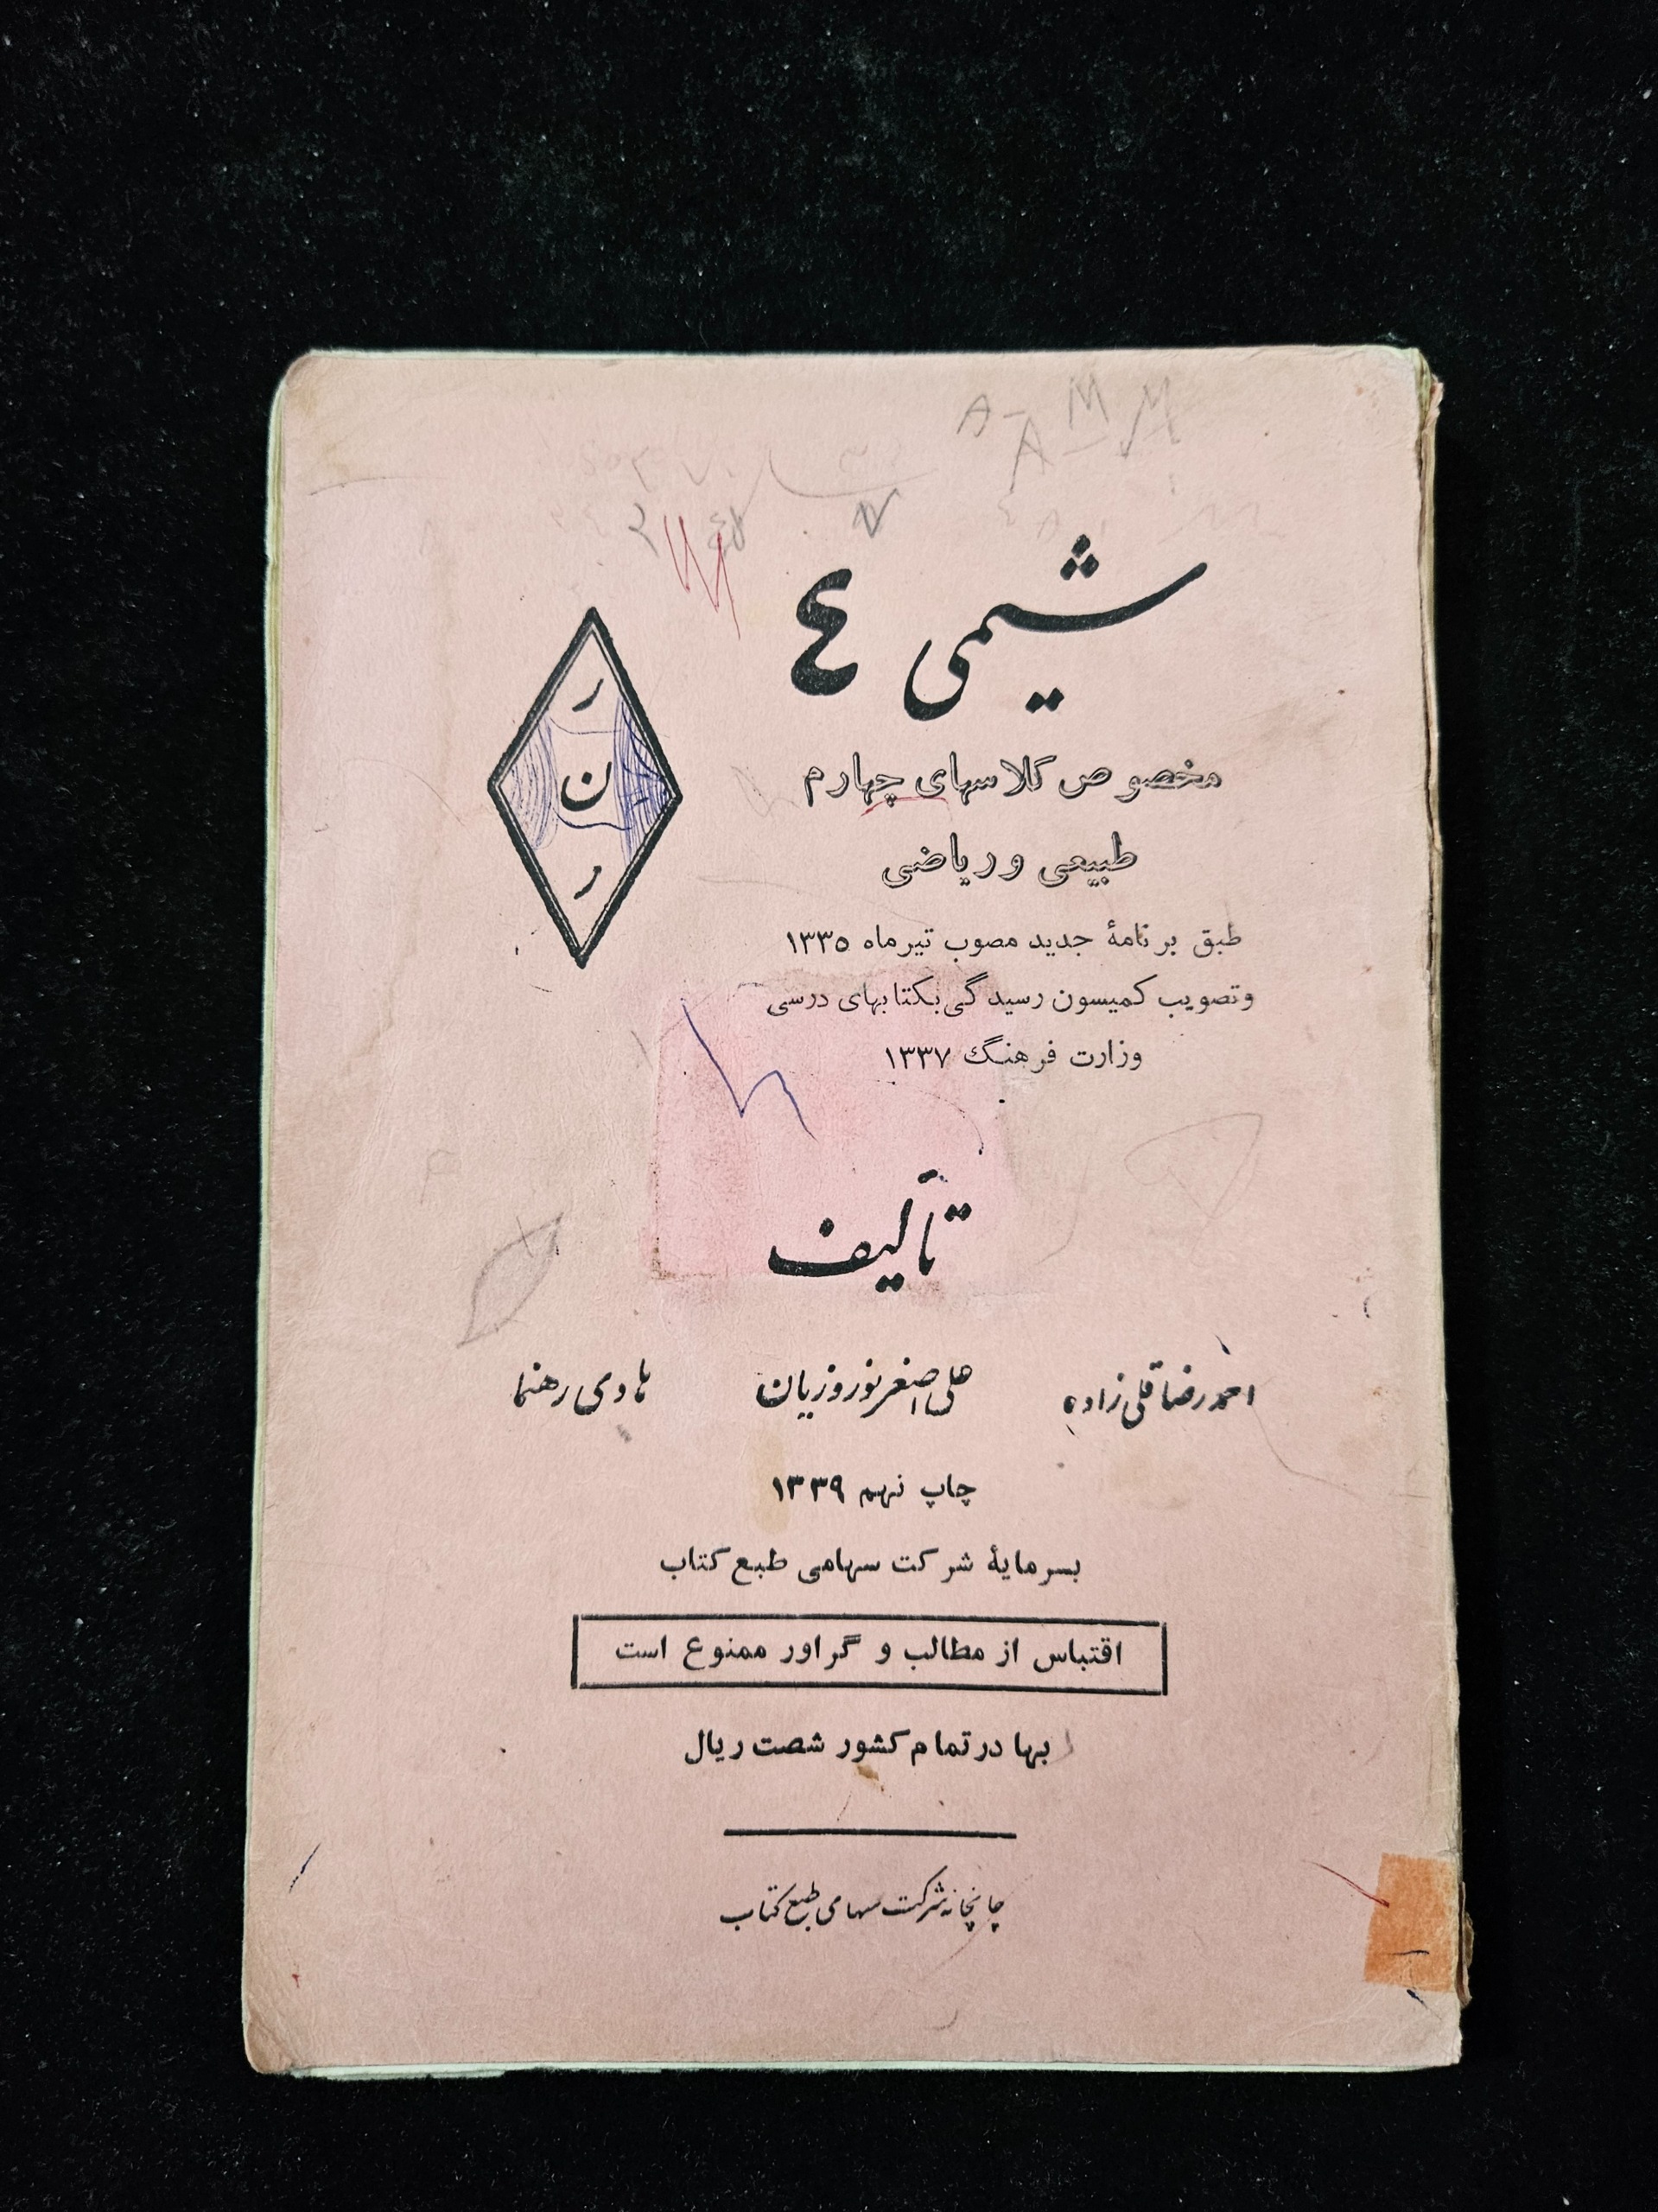 شیمی ٤
مخصوص کلاسهای چهارم
طبیعی و ریاضی
طبق برنامهٔ جدید مصوب تیرماه ۱۳۳۵
و تصویب کمیسیون رسیدگی بکتابهای درسی
وزارت فرهنگ ۱۳۳۷
ر
ن
ر
تألیف
احمد رضاقلی زاده علی اصغر نوروزیان هادی رهنما
چاپ نهم ۱۳۳۹
بسرمایهٔ شرکت سهامی طبع کتاب
اقتباس از مطالب و گراور ممنوع است
بها در تمام کشور شصت ریال
چاپخانه شرکت سهامی طبع کتاب